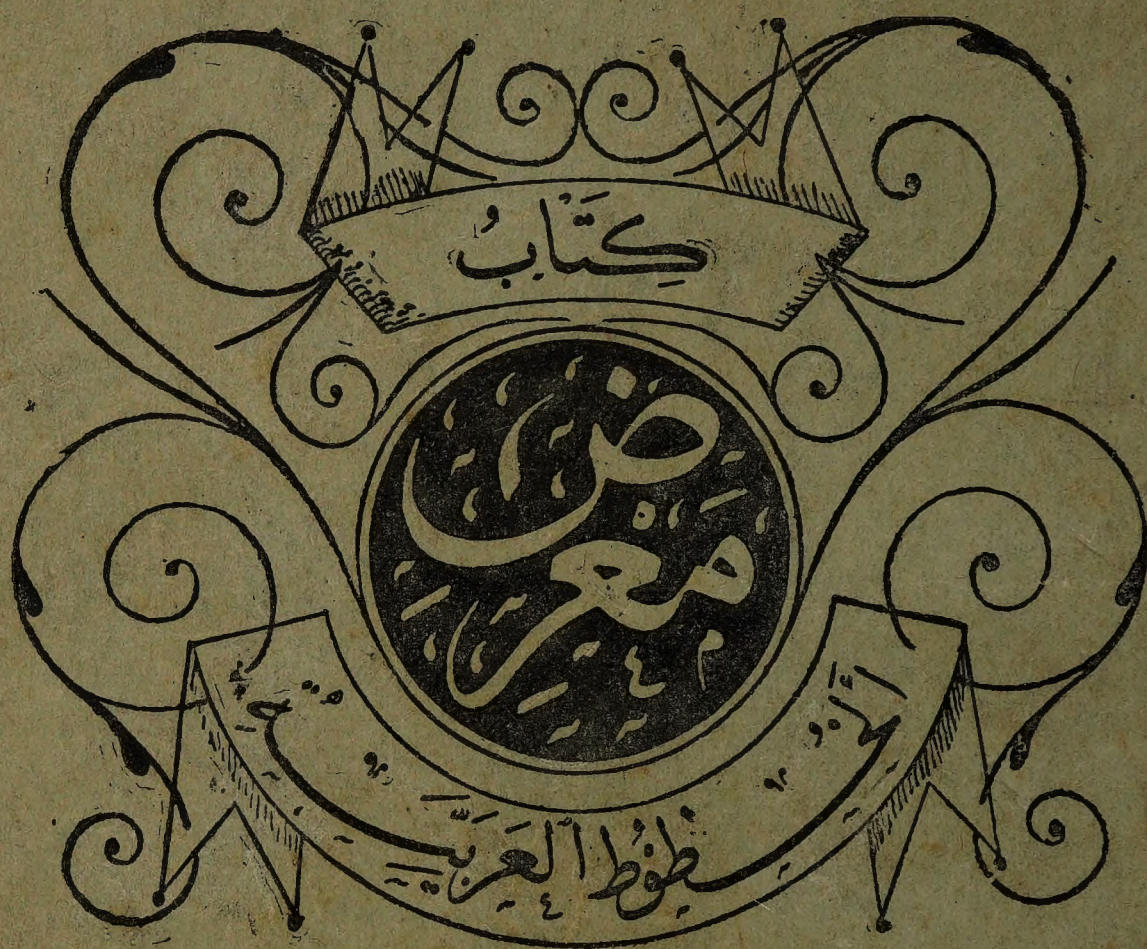 كِتَابُ
مَعْرِضُ
الْخُطُوطِ الْعَرَبِيَّةِ